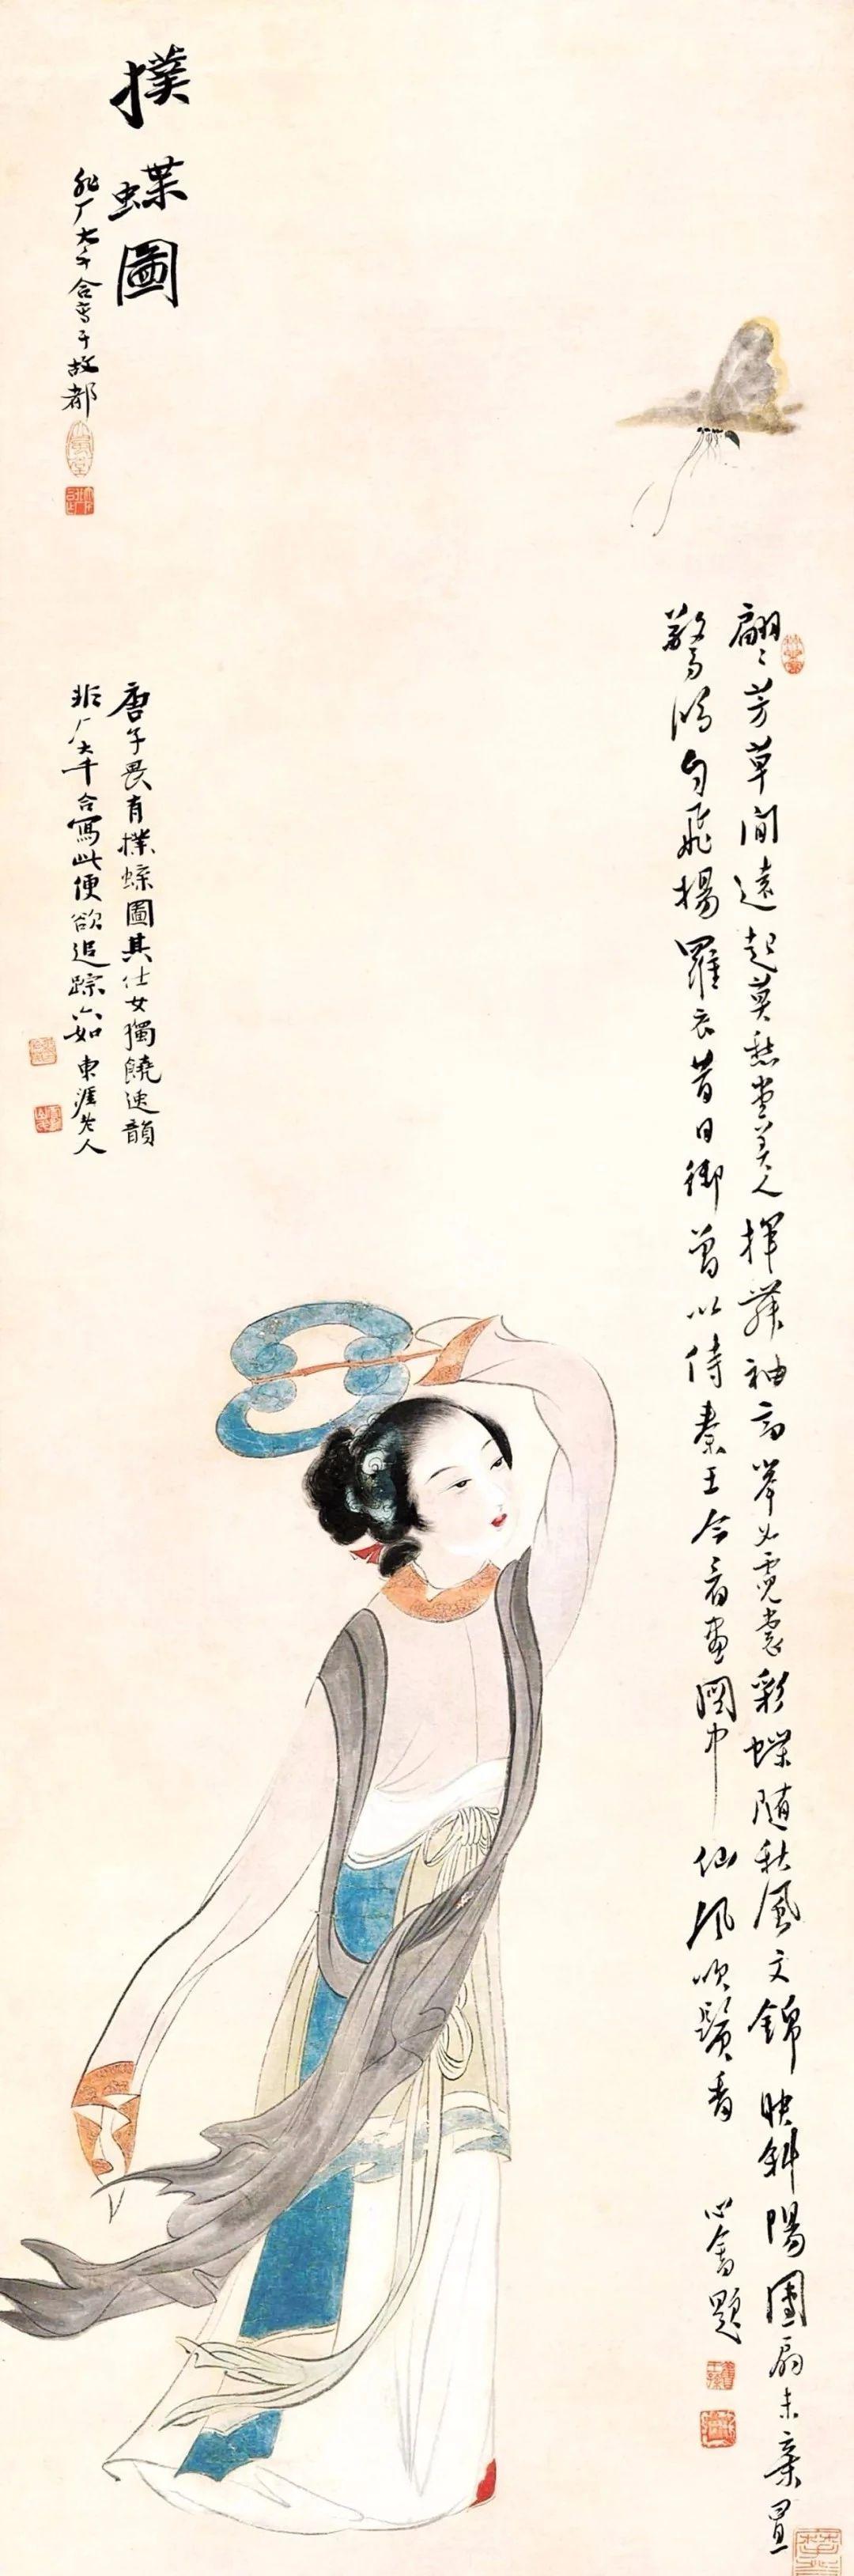 翩〻芳草間遠起莫愁堂美人揮舞袖高舉如霓裳彩蝶隨秋風文錦映斜陽團扇未棄置
驚鴻自飛揚羅衣昔日御曾以侍秦王今看畫圖中仙風吹鬢香 心畬題
撲蝶圖
非厂大千合寫于故都
唐子畏有撲蝶圖其仕女獨饒逸韻
非厂大千合寫此便欲追踪六如 東涯老人